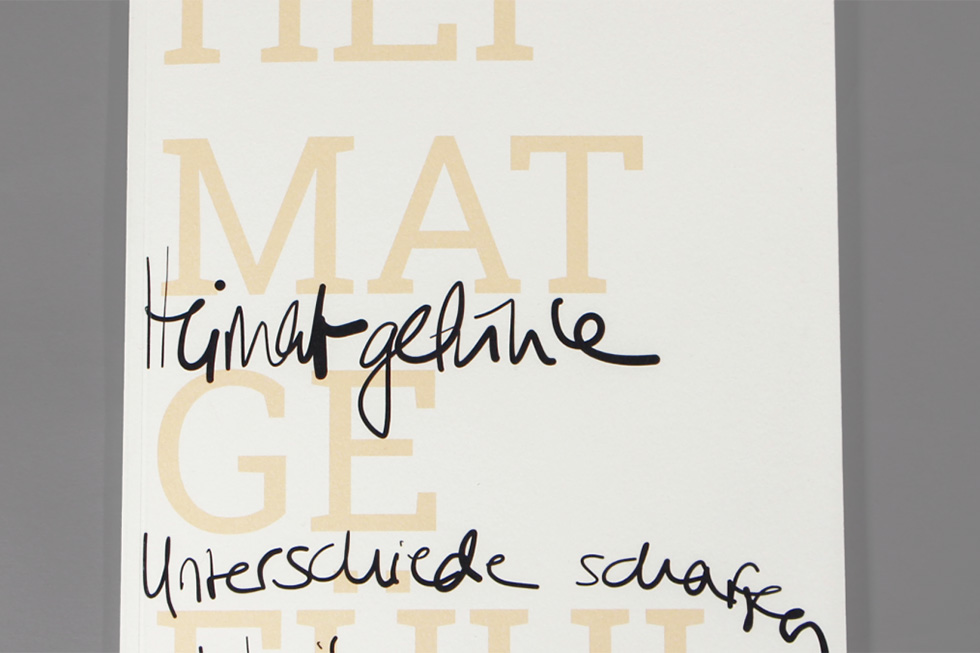 HEI
MAT
Heimatgefühle
GE
Unterschiede schaffen
FÜHL